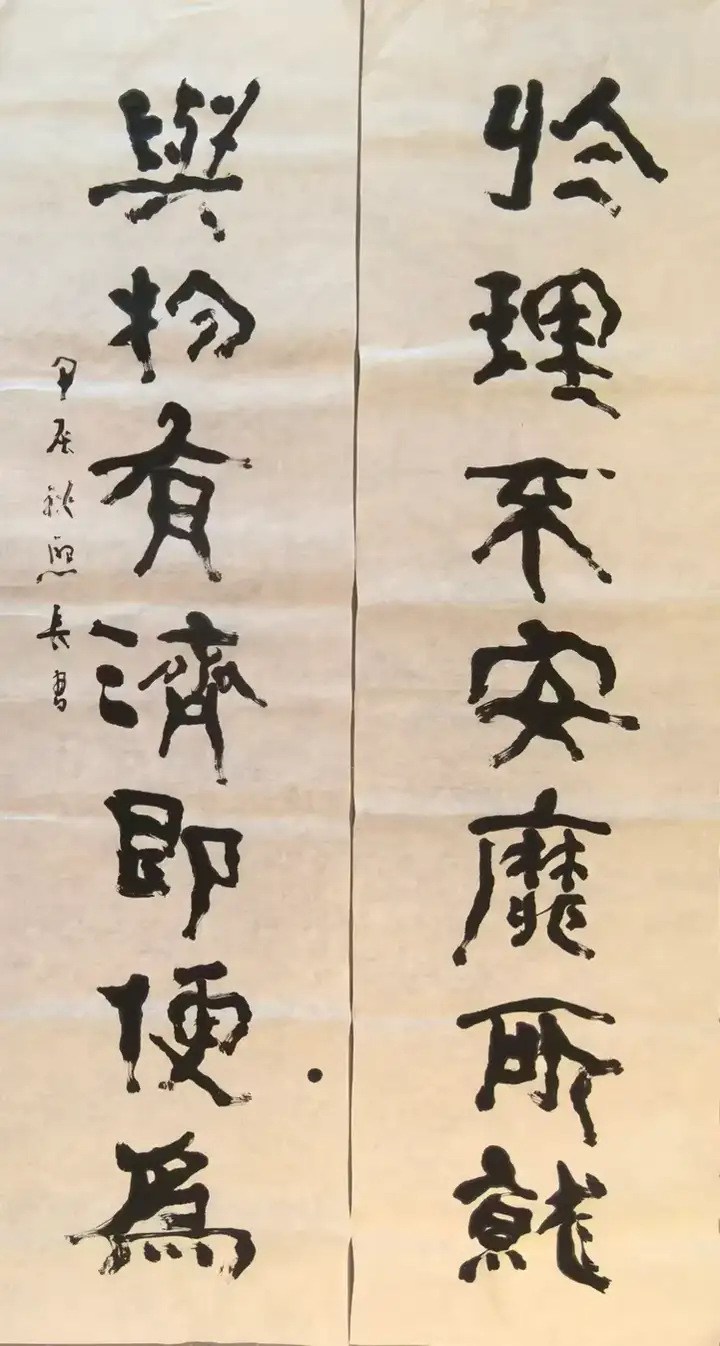 於理不安靡所就
與物有濟即便為
甲辰秋 長書